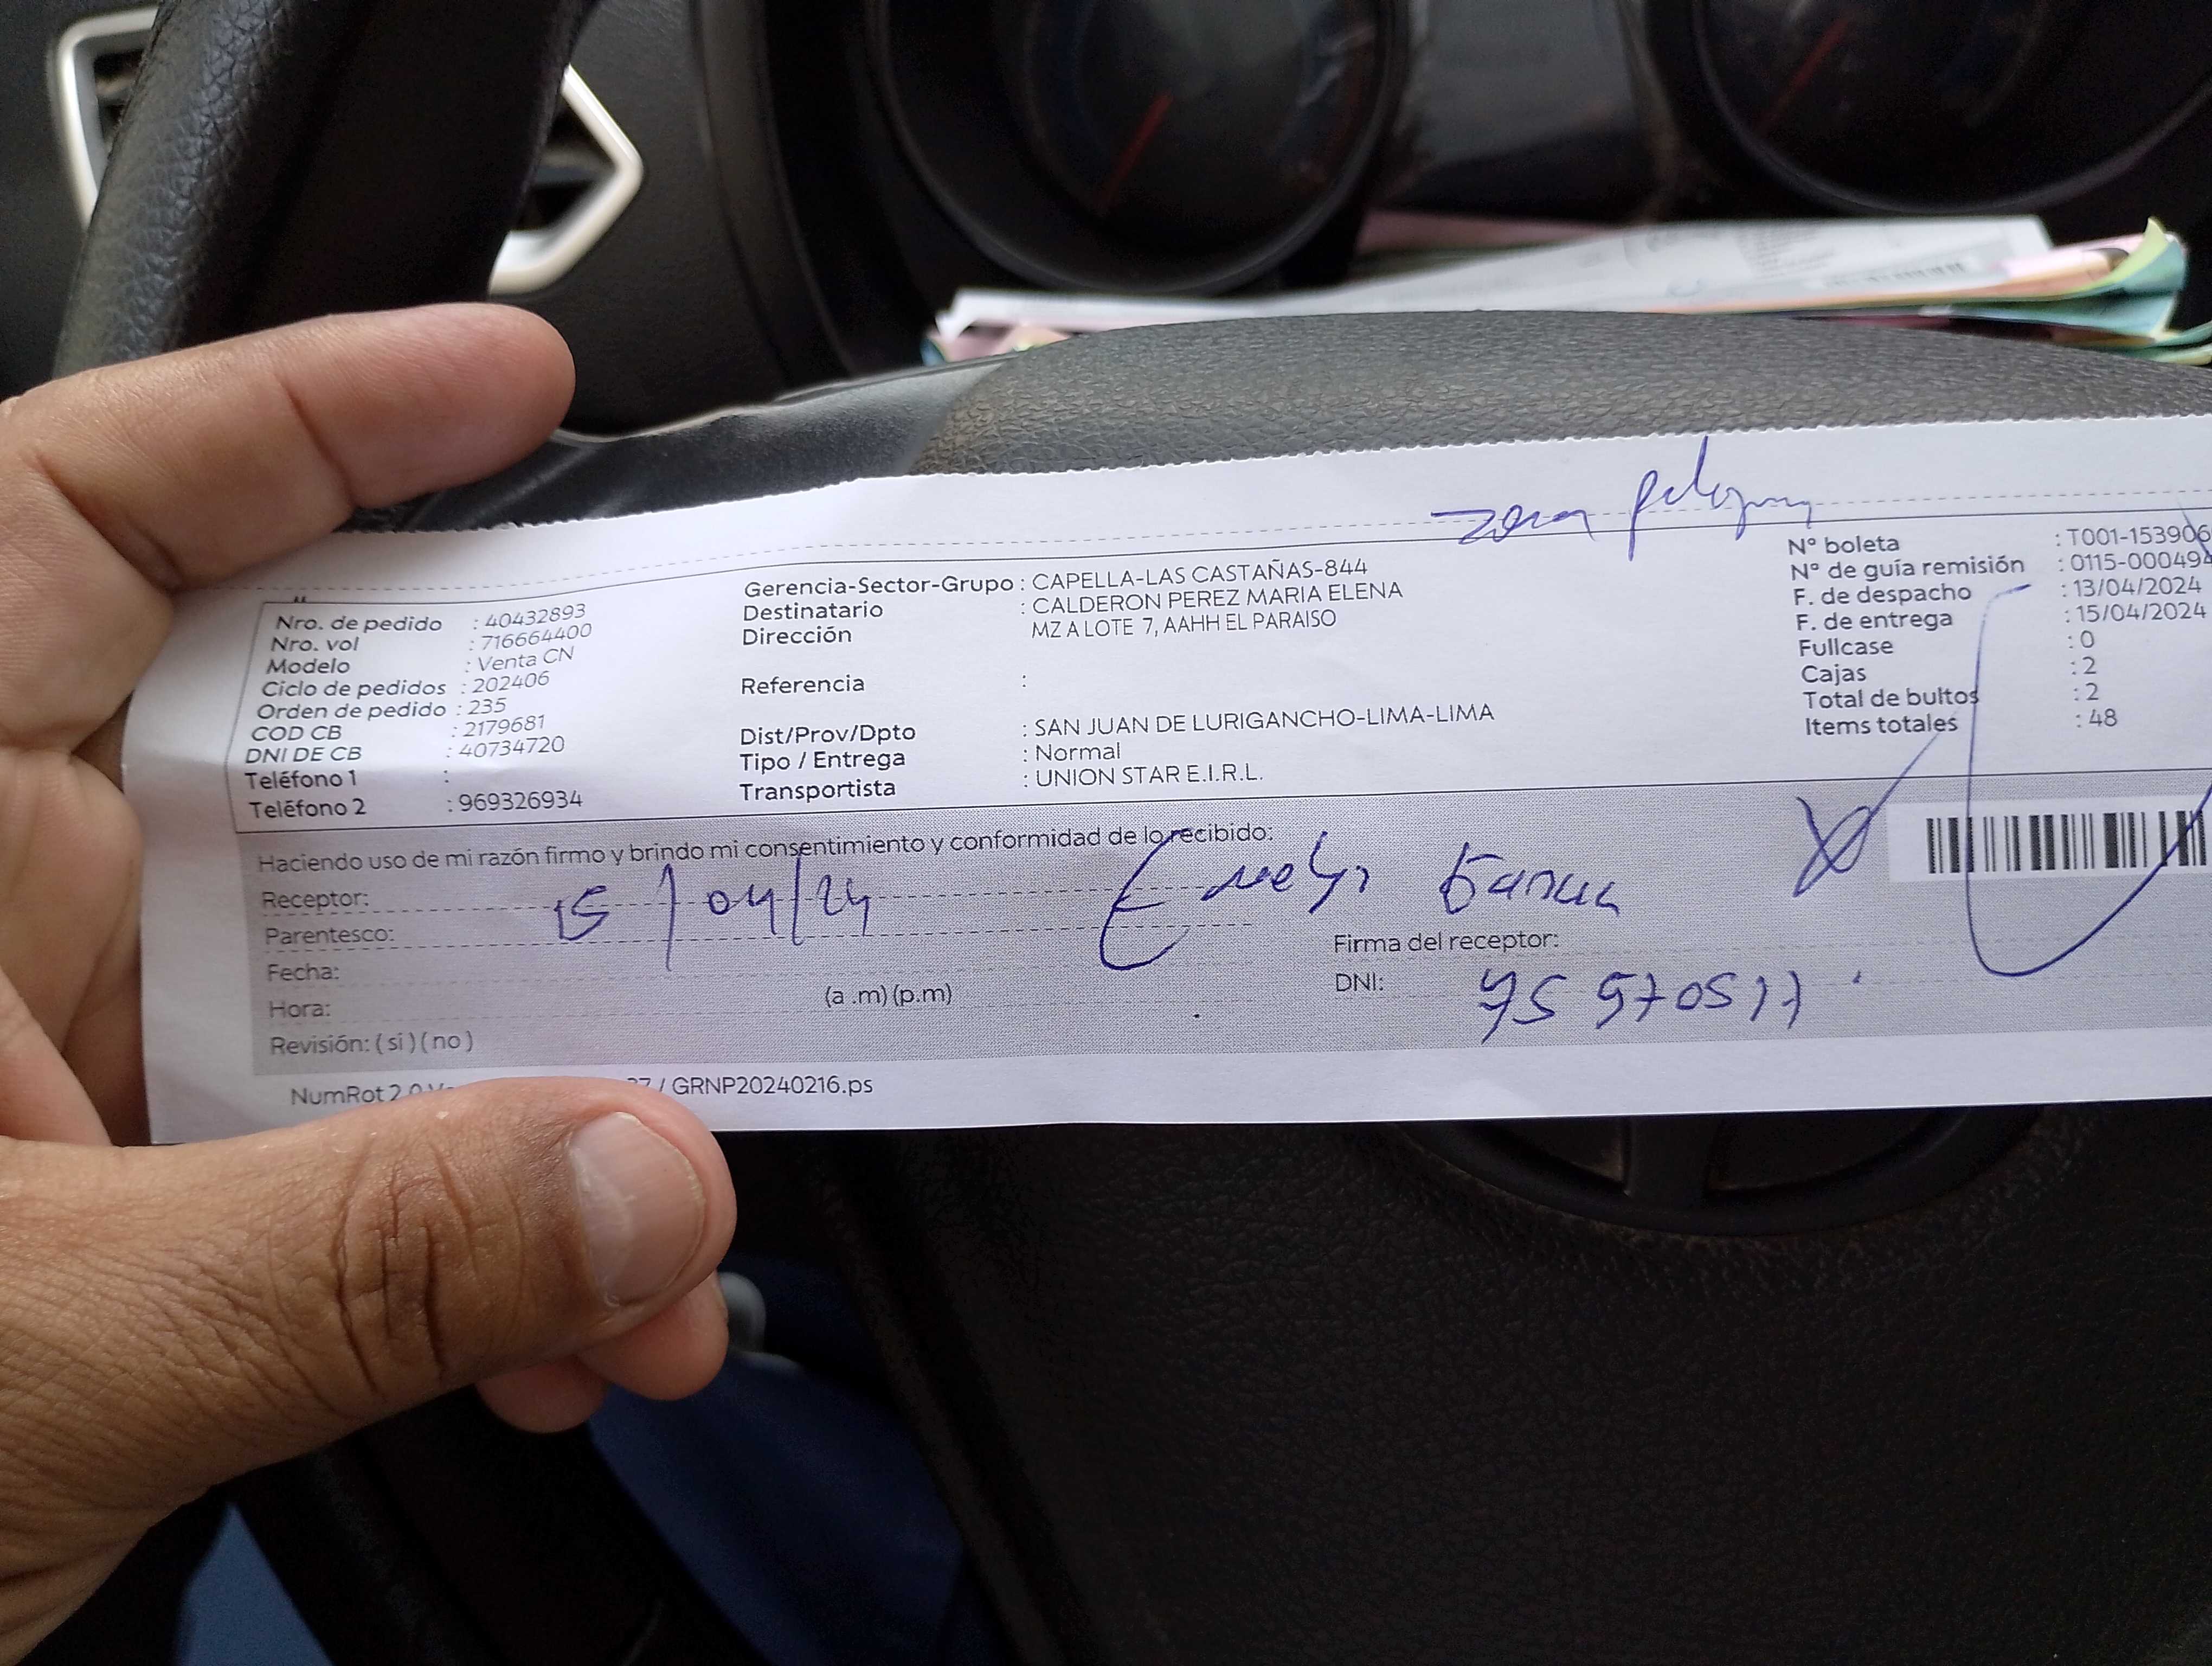 zona peligrosa
Nro. de pedido : 40432893
Nro. vol : 716664400
Modelo : Venta CN
Ciclo de pedidos : 202406
Orden de pedido : 235
COD CB : 2179681
DNI DE CB : 40734720
Teléfono 1 :
Teléfono 2 : 969326934
Gerencia-Sector-Grupo : CAPELLA-LAS CASTAÑAS-844
Destinatario : CALDERON PEREZ MARIA ELENA
Dirección MZ A LOTE 7, AAHH EL PARAISO
Referencia :
Dist/Prov/Dpto : SAN JUAN DE LURIGANCHO-LIMA-LIMA
Tipo / Entrega : Normal
Transportista : UNION STAR E.I.R.L.
N° boleta : T001-153906
N° de guía remisión : 0115-000494
F. de despacho : 13/04/2024
F. de entrega : 15/04/2024
Fullcase : 0
Cajas : 2
Total de bultos : 2
Items totales : 48
Haciendo uso de mi razón firmo y brindo mi consentimiento y conformidad de lo recibido:
Receptor: 15/04/24
Parentesco:
Fecha:
Hora: (a .m) (p.m)
Revisión: ( si ) ( no )
Firma del receptor:
DNI:
NumRot 2.0 / GRNP20240216.ps